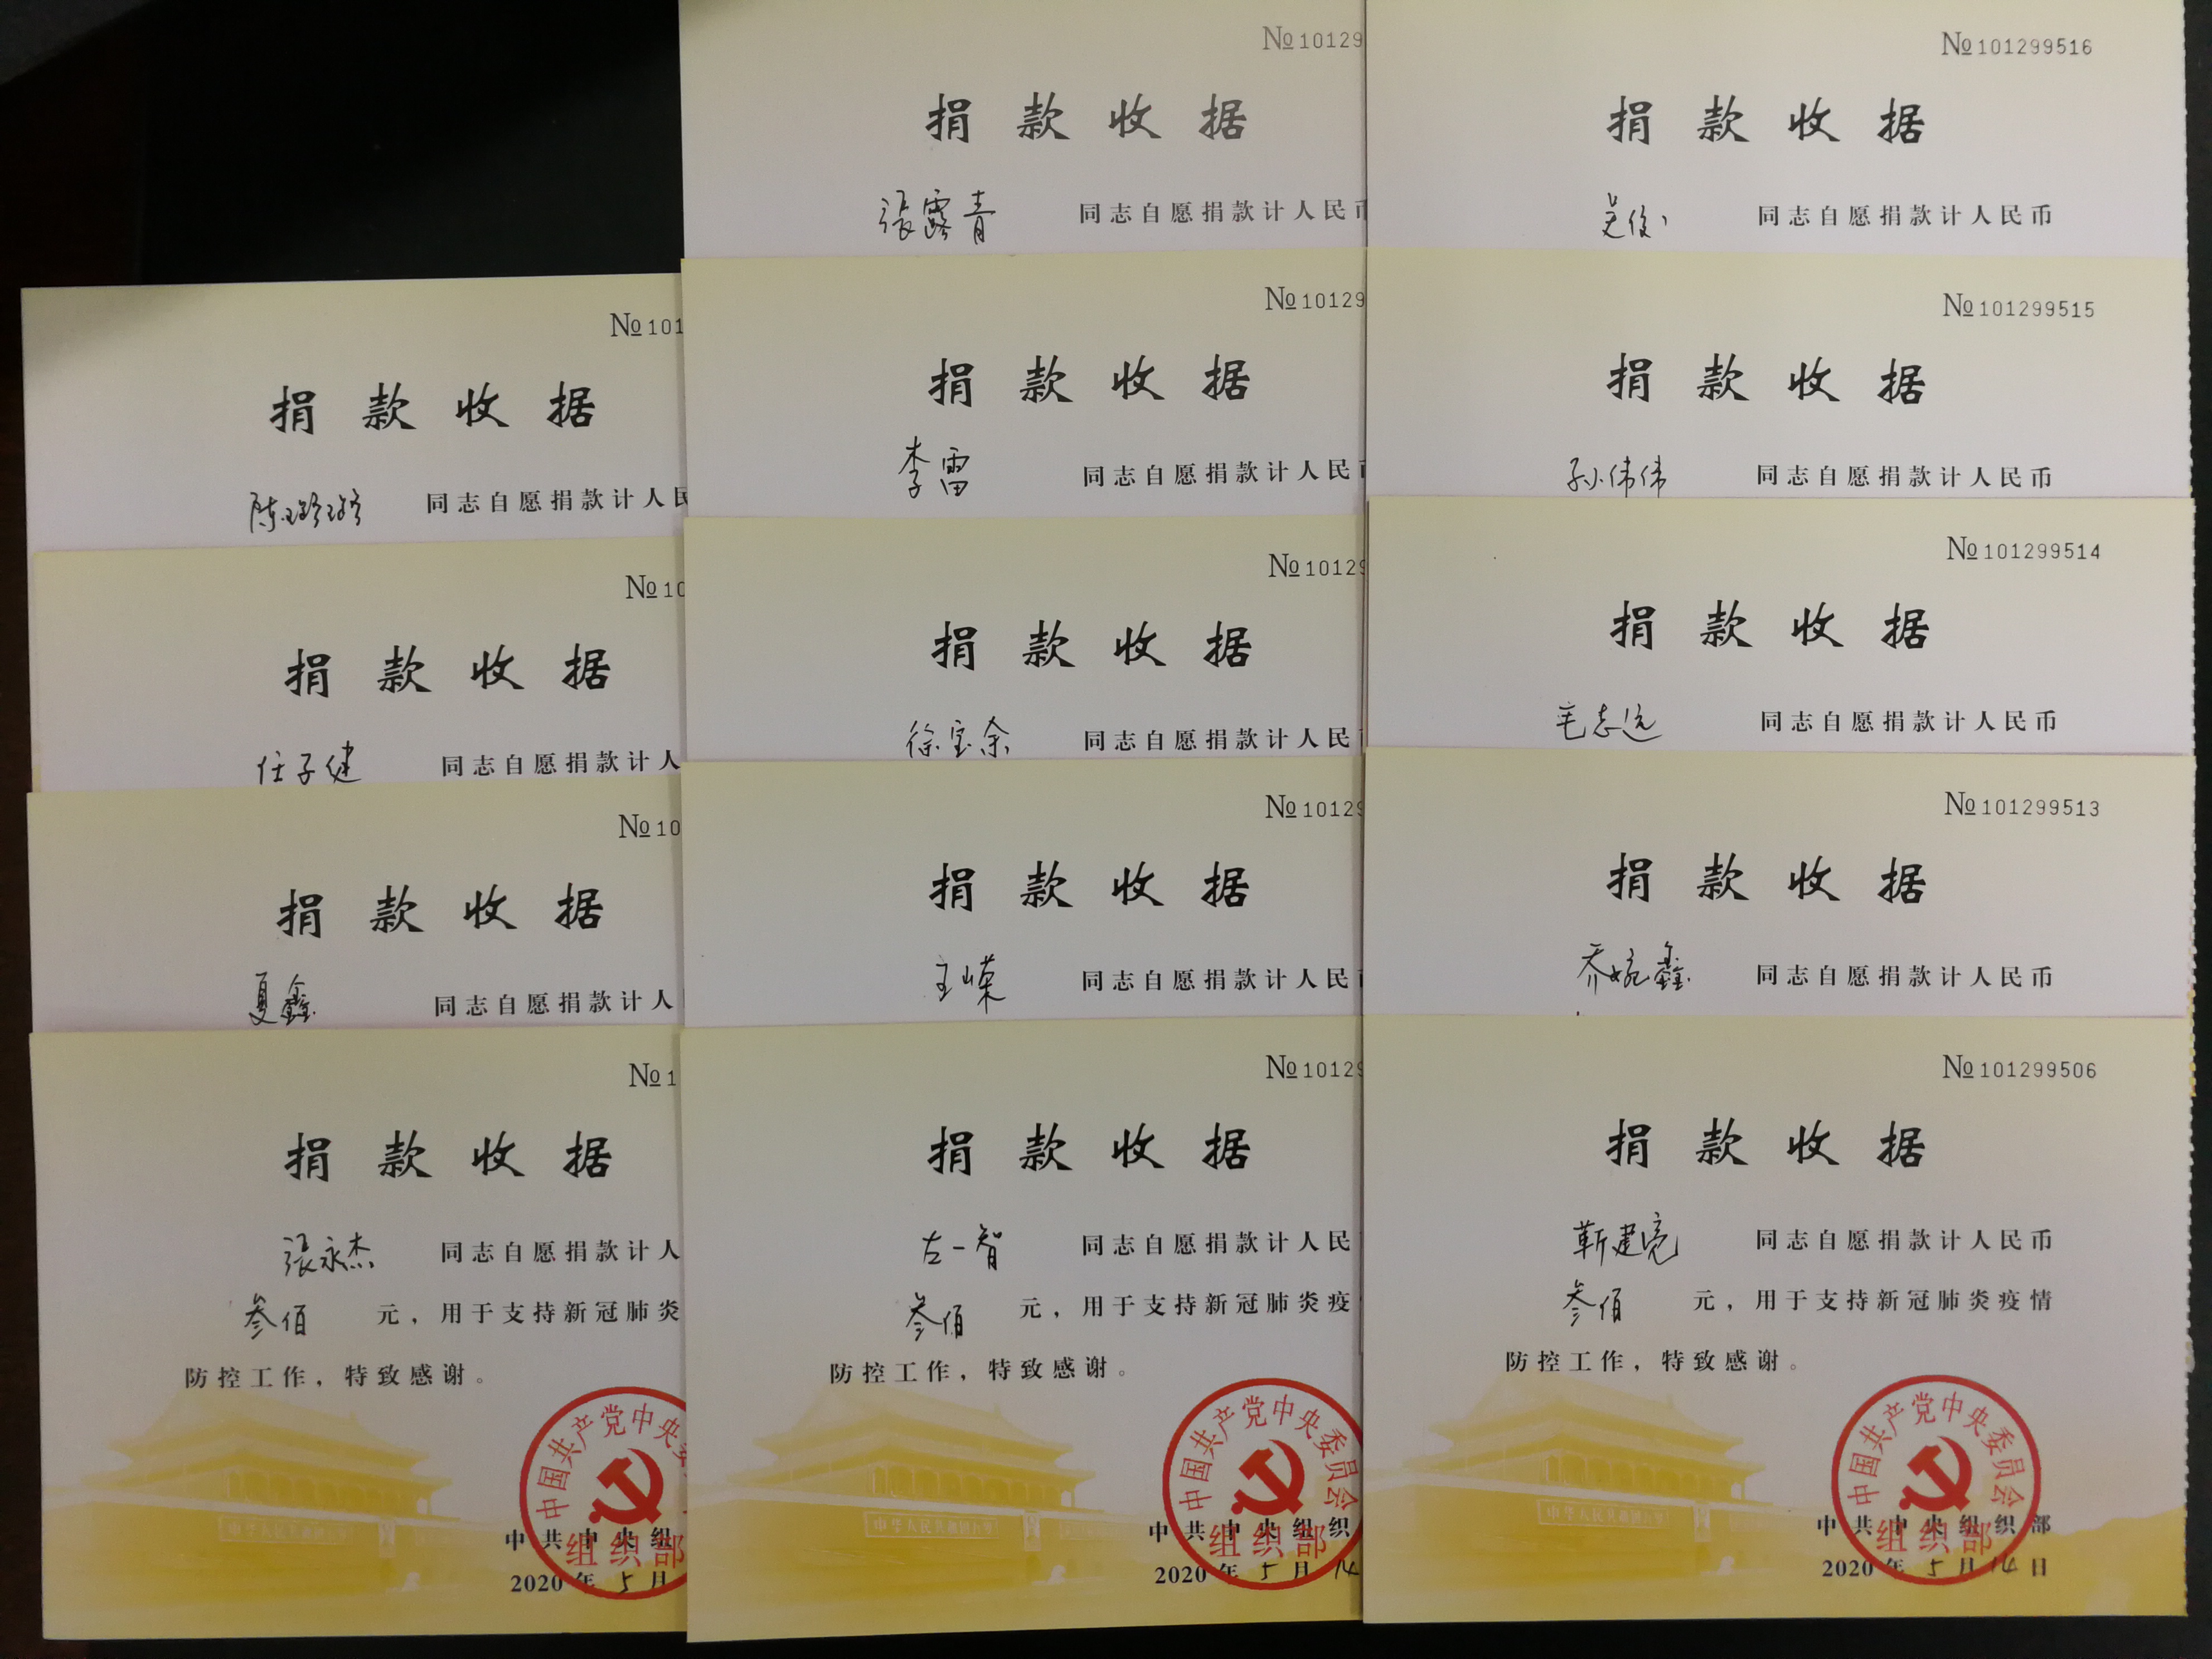 №101
捐款收据
陈璐璐 同志自愿捐款计人民
№10
捐款收据
任子健 同志自愿捐款计人
№10
捐款收据
夏鑫 同志自愿捐款计人
№1
捐款收据
張永杰 同志自愿捐款计人
叁佰 元，用于支持新冠肺炎
防控工作，特致感谢。
中国共产党中央委
组织部
中华人民共和国万岁
中共中央组
2020年5月
№10129
捐款收据
張露青 同志自愿捐款计人民
№10129
捐款收据
李雷 同志自愿捐款计人民
№10129
捐款收据
徐宝余 同志自愿捐款计人民
№10129
捐款收据
王嵘 同志自愿捐款计人民
№10129
捐款收据
左一智 同志自愿捐款计人民
叁佰 元，用于支持新冠肺炎疫
防控工作，特致感谢。
中国共产党中央委员会
组织部
中华人民共和国万岁
中共中央组织
2020年5月14
№101299516
捐款收据
同志自愿捐款计人民币
№101299515
捐款收据
孙伟伟 同志自愿捐款计人民币
№101299514
捐款收据
毛志远 同志自愿捐款计人民币
№101299513
捐款收据
乔婉鑫 同志自愿捐款计人民币
№101299506
捐款收据
靳建亮 同志自愿捐款计人民币
叁佰 元，用于支持新冠肺炎疫情
防控工作，特致感谢。
中国共产党中央委员会
组织部
中华人民共和国万岁
中共中央组织部
2020年5月14日